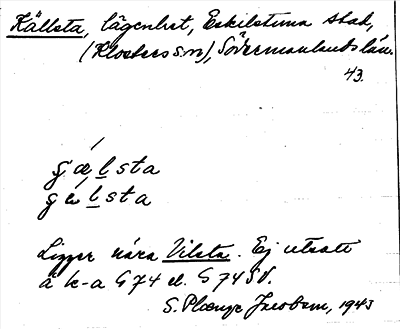 Källsta, lägenhet, Eskilstuna stad,
(Klosters sn), Södermanlands län.
43.
gǽl̲sta
gäl̲sta
Ligger nära Vilsta. Ej utsatt
å k-a G 74 el. G 74 SV.
S. Jacobson, 1943